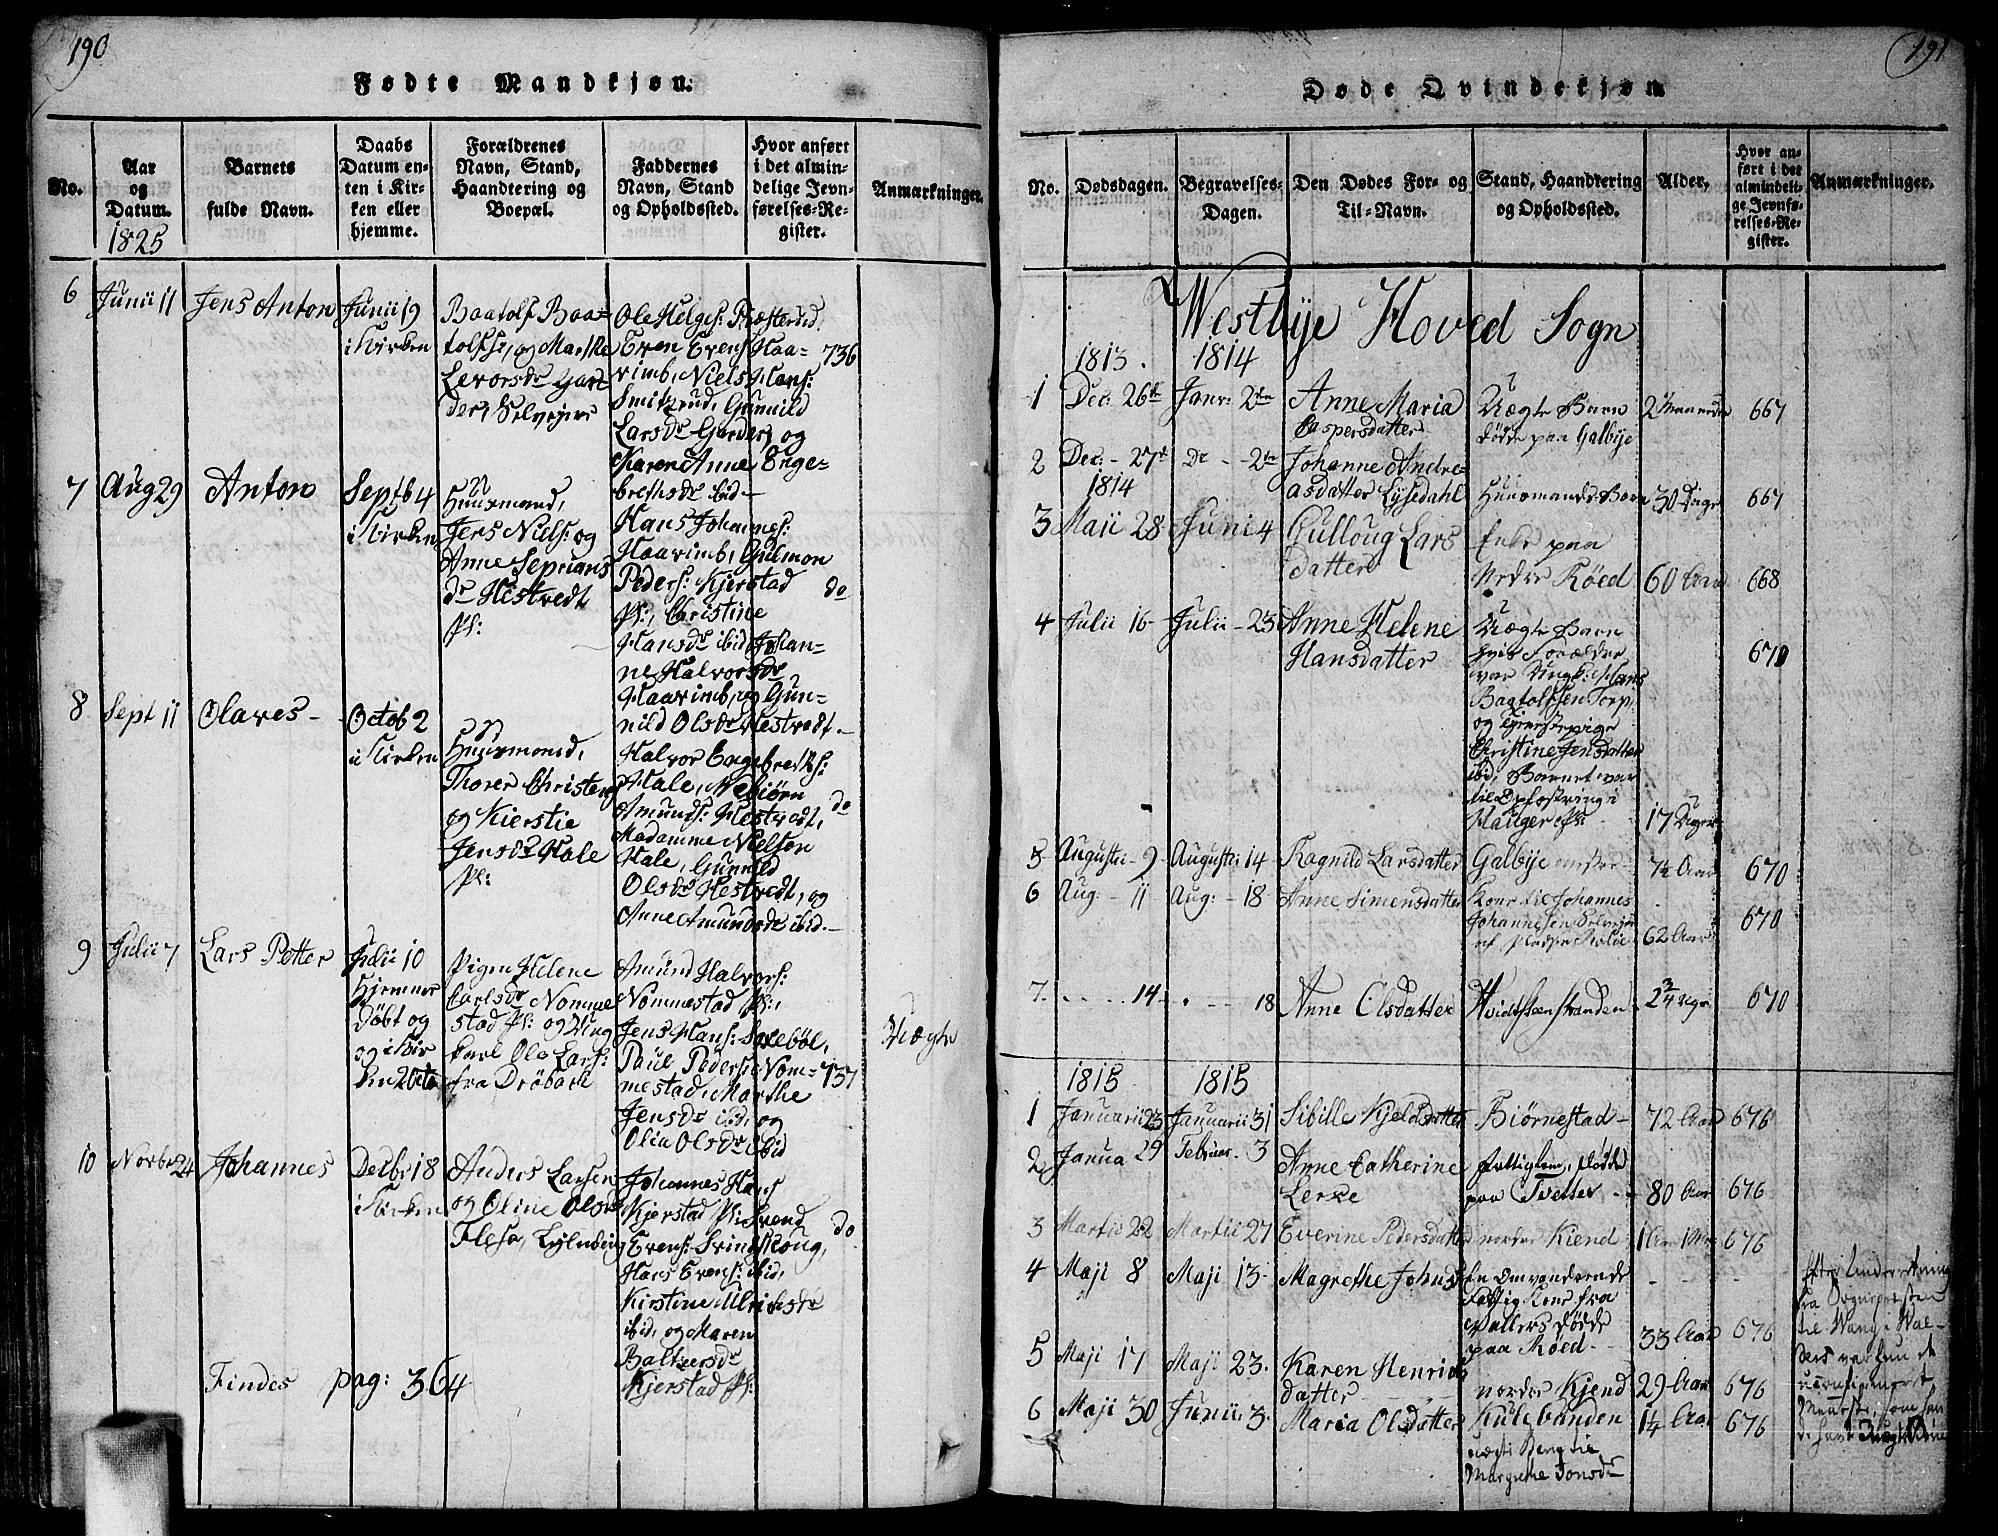 190
Fødte Mandkjøn.
No.
Aar
og
Datum.
1825
Barnets
fulde Navn.
Daabs
Datum en-
ten i Kir-
ken eller
hjemme.
Forældrenes
Navn, Stand,
Haandtering og
Boepæl.
Faddernes
Navn, Stand
og Opholdssted.
Hvor anført
i det almin-
delige Jevn-
førelses-Re-
gister.
Anmærkninger.
6 Junii 11 Jens Anton
Junii 19
i Kirken
Baatolf Baa-
tolfs:, og Marthe
Levorsdr Gar-
der, Selvejere
Ole Helges: Præsterud,
Even Evens: Haa-
vimb, Niels Hans:
Smitsrud, Gunnild
Larsdr Garder, og
Karen Anne Enge-
brethsdr ibid-
736
7 Aug 29 Anton
Septb 4
i Kirken
Huusmand,
Jens Niels: og
Anne
dr Hestvedt
Pl:
Hans Johannes:
Haavimb, Gulmon
Peders: Kjerstad
Pl:, Christine
Hansdr ibid, Johan-
ne Halvorsdr
Haavimb, og Gun-
nild Olsdr Hestvedt.-
do
8 Sept 11 Olaves-
Octob 2
i Kirken
Huusmand,
Thorer Christens
og Kierstie
Jensdr Hale
Pl:
Halvor Engebreths:
Hale, Nebiørn
Amunds: Hestvedt,
Madamme Nielson
Hale, Gunnild
Olsdr Hestvedt, og
Anne Amundsdr ibid.-
do
9 Julii 7 Lars Petter
Julii 10
Hjemme
Døbt og
og i Kir
ken 2 Octo
Pigen Helene
Carlsdr Nomme
stad Pl: og Ung
karl Ole Lars:
fra Drøbach
Amund Halvors:
Nommestad Pl:,
Jens Hans: Saxebøl,
Paul Peders: Nom-
mestad, Marthe
Jensdr ibid, og
Olia Olsdr ibid
737
Uægte
10 Novbr 24 Johannes
Decbr 18
i Kirken
Anders Larsen
og Oline Olsdr
Flesa,
Johannes Hans
Kjerstad Pl: Svend
Evens: Svindskoug,
Hans Evens: ibid,
Kirstine Ulrichsdr
ibid, og Maren
Baltzersdr
Kjerstad Pl:
do
Findes pag: 364
191
Døde Qvindekjøn
No.
Dødsdagen.
Begravelses-
Dagen.
Den Dødes For- og
Til-Navn.
Stand, Haandtering
og Opholdssted.
Alder,
Hvor an-
ført i det
almindeli-
ge Jevnfø-
relses-Re-
gister.
Anmærkninger.
Westbye Hoved Sogn
1813. 1814
1 Dec: 26de Janr: 2den Anne Maria
Caspersdatter
Uægte Barn
døde paa Galbye
2 Maaneder 667
2 Dec: - 27de Do - - 2den Johanne Andre-
asdatter Lysedahl
Huusmands Barn 30 Dage 667
1814
3 Maji 28 Junii 4 Gulloug Lars
datter
Enke paa
Nedre Røed 60 Aar 668
4 Julii 16 Julii - 23 Anne Helene
Hansdatter
Uægte Barn
hvis Forældre
var Ungk: Hans
Bagtolfsen Torp,
og Tjenestepige
Christine Jensdatter
ibid, Barnet var
til Opfostring i
Hauger Pl:
17 Dage 670
5 Augusti - 9 Augusti 14 Ragnild Larsdatter Galbye 74 Aar 670
6 Aug: - 11 Aug: - 18 Anne Simensdatter Kone til Johannes
Johannesen Selvejer
af Pladsen
62 Aar 670
7. ..... 14 - - 18 Anne Olsdatter Hvidsteenstranden 2 3/4 Uge 670
1815 1815
1 Januarii 23 Januarii 31 Sibille Kjeldsdatter Biørnestad - 72 Aar 676
2 Janua 29 Februar. 3 Anne Catherine
Lerke
fattiglem, døde
paa Tvetter - 80 Aar 676
3 Martii 22 Martii 27 Everine Pedersdatter norder Kiend 676
4 Maji 8 Maji 13 Magrethe Johnsdr En Omvandrende
Fattig Kone fra
Valders døde
paa Røed - 33 Aar 676
Efter Underretning
fra Sognepresten
til Wang i Wal-
ders var hun et
5 Maji 17 Maji 23. Karen Henrics
datter
norder Kjend 29 Aar 676
6 Maji 30 Junii. 3. Maria Olsdatter Kulebunden
uægte Barn til
Margrethe Jonsdr
14 Aar 676